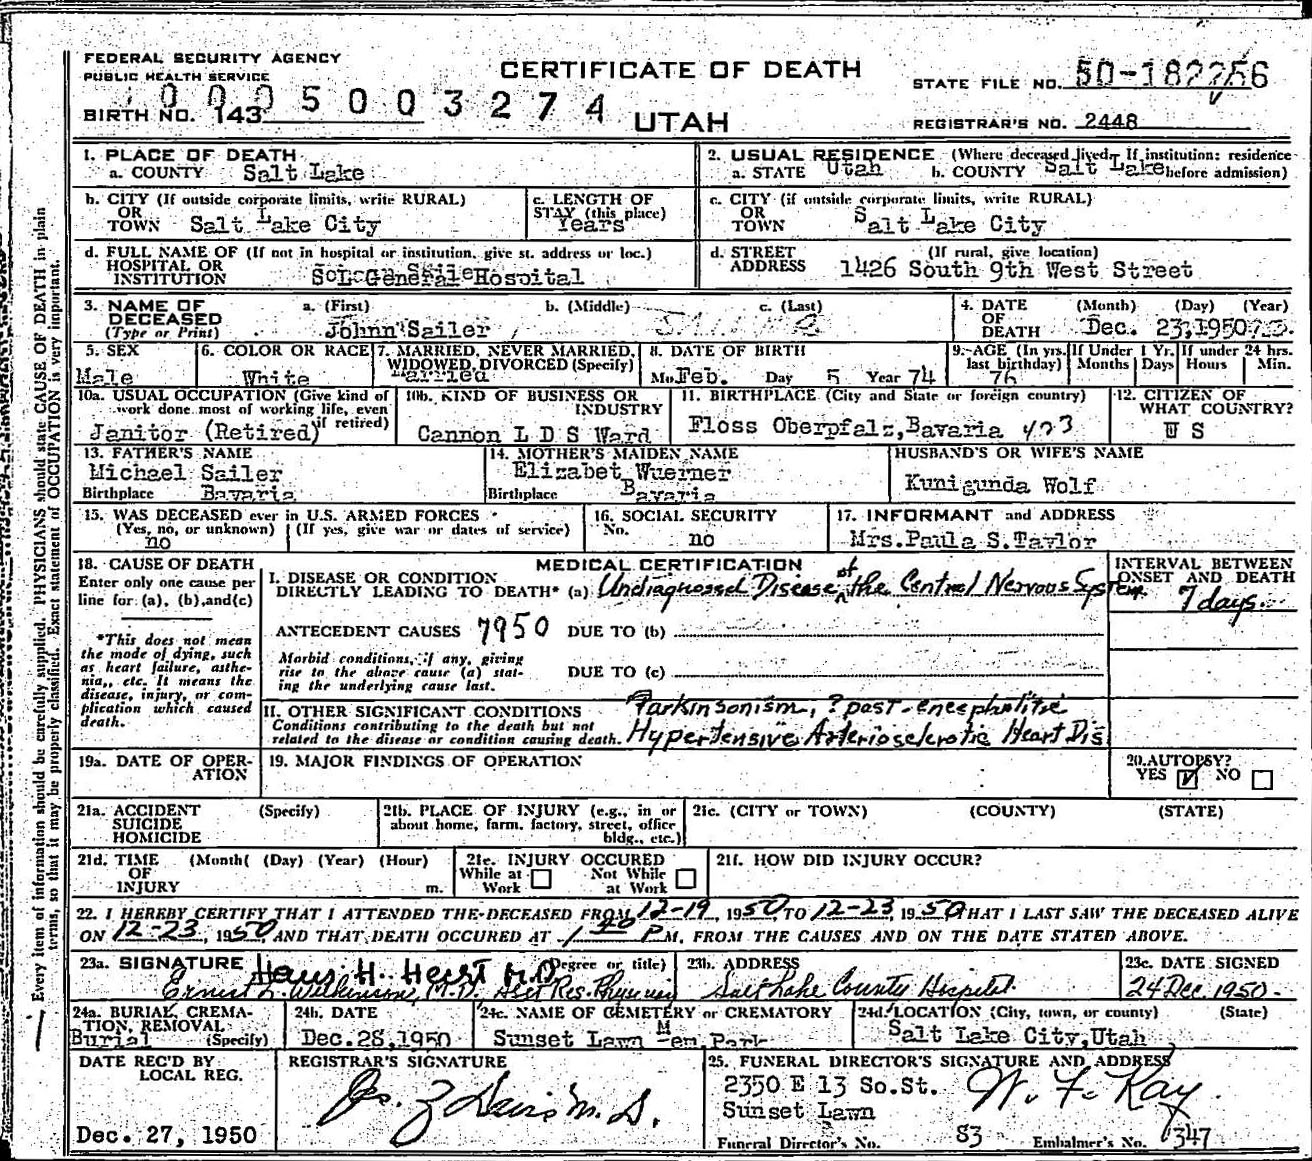 FEDERAL SECURITY AGENCY
PUBLIC HEALTH SERVICE
CERTIFICATE OF DEATH
STATE FILE NO. 50-182256
0005003274
BIRTH NO. 143
UTAH
REGISTRAR'S NO. 2448
1. PLACE OF DEATH
a. COUNTY Salt Lake
2. USUAL RESIDENCE (Where deceased lived. If institution: residence before admission)
a. STATE Utah b. COUNTY Salt Lake
b. CITY (If outside corporate limits, write RURAL)
OR
TOWN Salt Lake City
c. LENGTH OF
STAY (this place)
Years
c. CITY (if outside corporate limits, write RURAL)
OR
TOWN Salt Lake City
d. FULL NAME OF (If not in hospital or institution, give st. address or loc.)
HOSPITAL OR
INSTITUTION S L General Hospital
d. STREET (If rural, give location)
ADDRESS 1426 South 9th West Street
3. NAME OF
DECEASED
(Type or Print)
a. (First) b. (Middle) c. (Last)
Johnn Sailer
4. DATE (Month) (Day) (Year)
OF
DEATH Dec. 23, 1950
5. SEX
Male
6. COLOR OR RACE
White
7. MARRIED, NEVER MARRIED,
WIDOWED, DIVORCED (Specify)
Married
8. DATE OF BIRTH
Mo. Feb. Day 5 Year 74
9. AGE (In yrs. last birthday)
76
If Under 1 Yr.
Months Days
If under 24 hrs.
Hours Min.
10a. USUAL OCCUPATION (Give kind of
work done most of working life, even
if retired)
Janitor (Retired)
10b. KIND OF BUSINESS OR
INDUSTRY
Cannon L D S Ward
11. BIRTHPLACE (City and State or foreign country)
Floss Oberpfalz, Bavaria 423
12. CITIZEN OF
WHAT COUNTRY?
U S
13. FATHER'S NAME
Michael Sailer
Birthplace Bavaria
14. MOTHER'S MAIDEN NAME
Elizabet Wuerner
Birthplace Bavaria
HUSBAND'S OR WIFE'S NAME
Kunigunda Wolf
15. WAS DECEASED ever in U.S. ARMED FORCES
(Yes, no, or unknown) (If yes, give war or dates of service)
no
16. SOCIAL SECURITY
No. no
17. INFORMANT and ADDRESS
Mrs. Paula S. Taylor
18. CAUSE OF DEATH
Enter only one cause per
line for (a), (b), and (c)
*This does not mean
the mode of dying, such
as heart failure, asthe-
nia, etc. It means the
disease, injury, or com-
plication which caused
death.
MEDICAL CERTIFICATION
I. DISEASE OR CONDITION
DIRECTLY LEADING TO DEATH* (a) Undiagnosed Disease of the Central Nervous System
INTERVAL BETWEEN
ONSET AND DEATH
7 days.
ANTECEDENT CAUSES 7950 DUE TO (b)
Morbid conditions, if any, giving
rise to the above cause (a) stat-
ing the underlying cause last.
DUE TO (c)
II. OTHER SIGNIFICANT CONDITIONS
Conditions contributing to the death but not
related to the disease or condition causing death.
Parkinsonism, ? post-encephalitic
Hypertensive Arteriosclerotic Heart Dis
19a. DATE OF OPER-
ATION
19. MAJOR FINDINGS OF OPERATION
20. AUTOPSY?
YES NO
21a. ACCIDENT (Specify)
SUICIDE
HOMICIDE
21b. PLACE OF INJURY (e.g., in or
about home, farm, factory, street, office
bldg., etc.)
21c. (CITY or TOWN) (COUNTY) (STATE)
21d. TIME (Month( (Day) (Year) (Hour)
OF
INJURY m.
21e. INJURY OCCURED
While at Work Not While at Work
21f. HOW DID INJURY OCCUR?
22. I HEREBY CERTIFY THAT I ATTENDED THE DECEASED FROM 12-19, 1950 TO 12-23, 1950 THAT I LAST SAW THE DECEASED ALIVE
ON 12-23, 1950 AND THAT DEATH OCCURED AT 1 40 P M. FROM THE CAUSES AND ON THE DATE STATED ABOVE.
23a. SIGNATURE (Degree or title)
Hans H. Hecht M.D.
Ernest L. Wilkinson, M.D. Asst Res. Physician
23b. ADDRESS
Salt Lake County Hospital
23c. DATE SIGNED
24 Dec. 1950
24a. BURIAL, CREMA-
TION, REMOVAL
(Specify)
Burial
24b. DATE
Dec. 28, 1950
24c. NAME OF CEMETERY or CREMATORY
Sunset Lawn Mem. Park
24d. LOCATION (City, town, or county) (State)
Salt Lake City, Utah
DATE REC'D BY
LOCAL REG.
Dec. 27, 1950
REGISTRAR'S SIGNATURE
25. FUNERAL DIRECTOR'S SIGNATURE AND ADDRESS
2350 E 13 So. St.
Sunset Lawn
W. F. Kay
Funeral Director's No. 83 Embalmer's No. 347
Every item of information should be carefully supplied. PHYSICIANS should state CAUSE OF DEATH in plain
terms, so that it may be properly classified. Exact statement of OCCUPATION is very important.